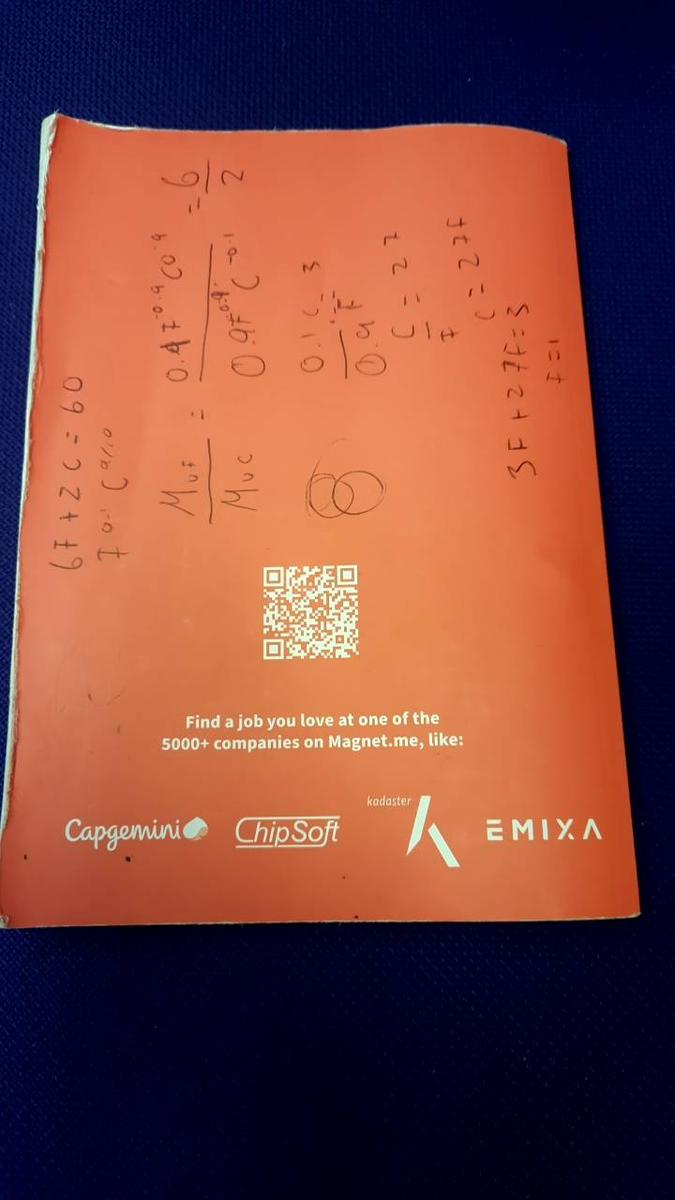 6F + 2C = 60
F^0.1 C^0.9
MUF / MUC = 0.1F^-0.9 C^0.9 / 0.9F^0.1 C^-0.1 = 6 / 2
0.1C / 0.9F = 3
C / F = 27
C = 27F
3F + 27F = 3
F = 1
Find a job you love at one of the
5000+ companies on Magnet.me, like:
Capgemini ChipSoft kadaster EMIXA